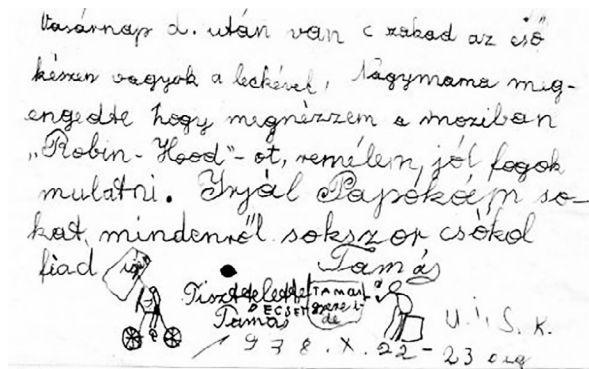 Vasárnap d. után van c szakad az eső
készen vagyok a leckével, Nagymama meg-
engedte hogy megnézzem a moziban
„Robin-Hood"-ot, remélem, jól fogok
mulatni. Irjál Papókám so-
kat, mindenről sokszor csókol
fiad Tamás
Tisztelettel TAMAS
DECSEH
Tamás
U.i.S.K.
1978.X.22-23 áig